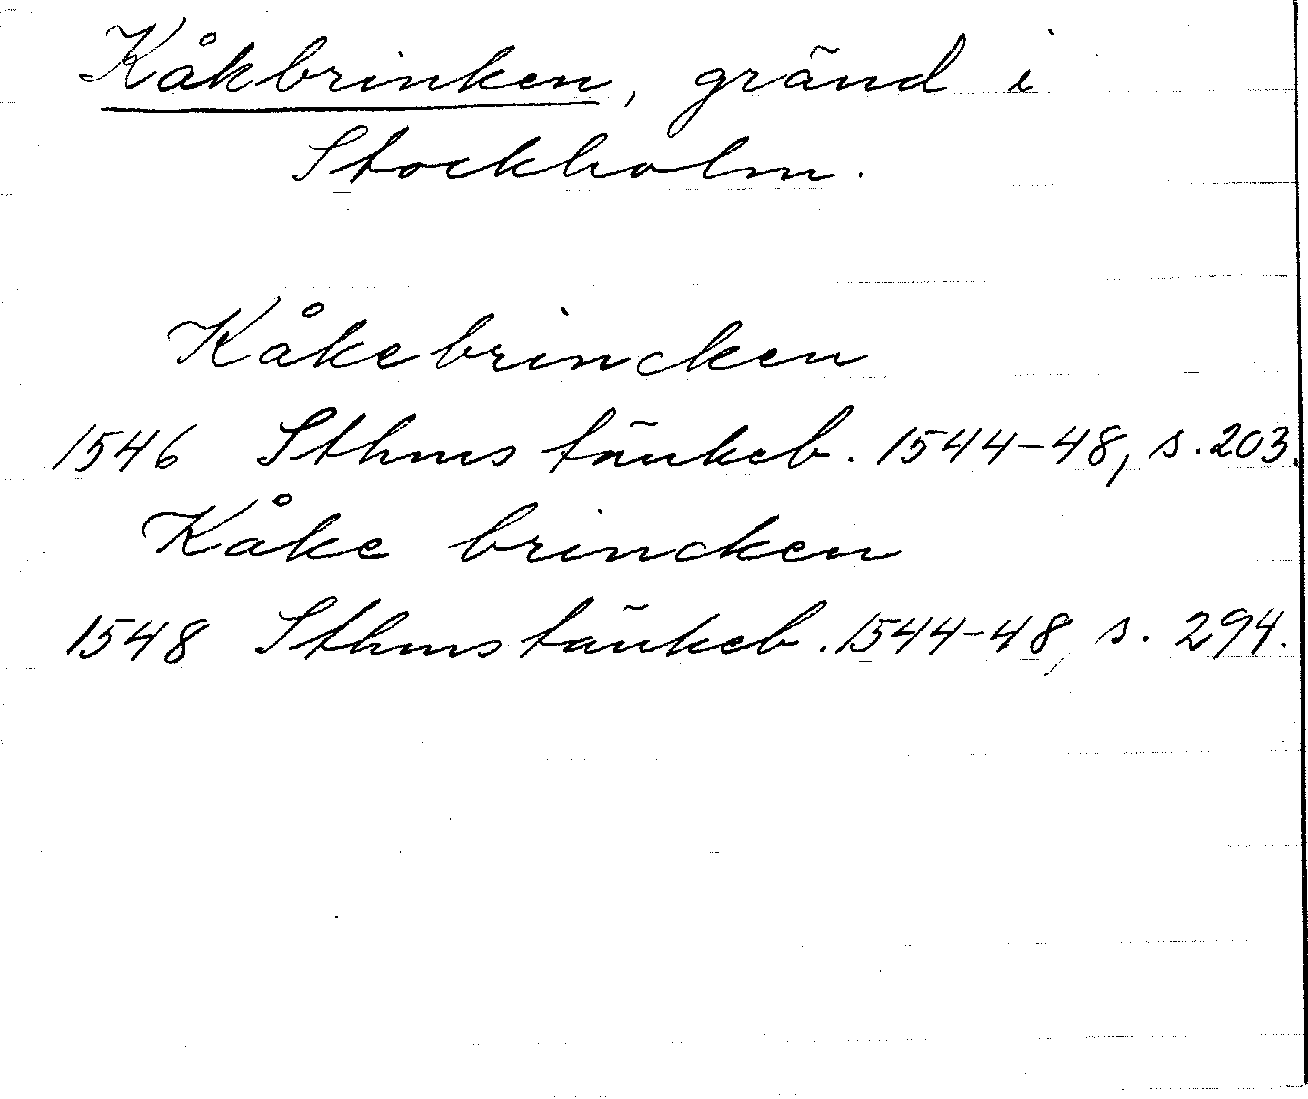 Kåkbrinken, gränd i
Stockholm.
Kåkebrincken
1546 Sthms tänkeb. 1544-48, s. 203.
Kåke brincken
1548 Sthms tänkeb. 1544-48, s. 294.